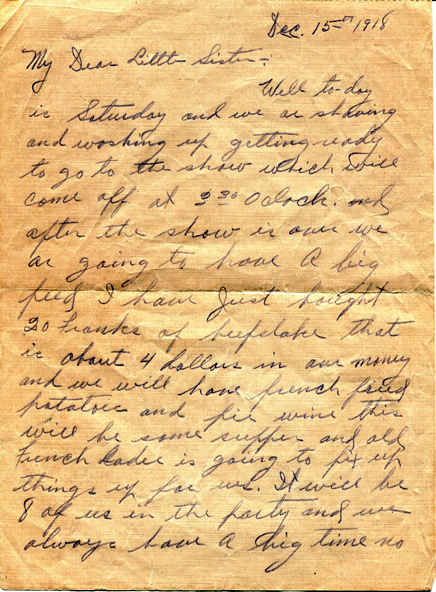 Dec. 15th 1918
My Dear Little Sister:
Well to-day
is Saturday and we ar shaving
and washing up getting ready
to go to the show which will
come off at 3 30 O clock. and
after the show is over we
ar going to have a big
feed I have Just bought
20 Franks of beefstake that
is about 4 dollars in our money
and we will have french fried
potatoes and pie wine this
will be some supper and old
French Ladie is going to fix up
things up for us. It will be
8 of us in the party and we
always have a big time no